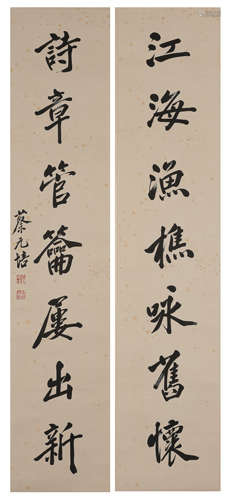 江海漁樵咏舊懷
詩章管籥屢出新
蔡元培